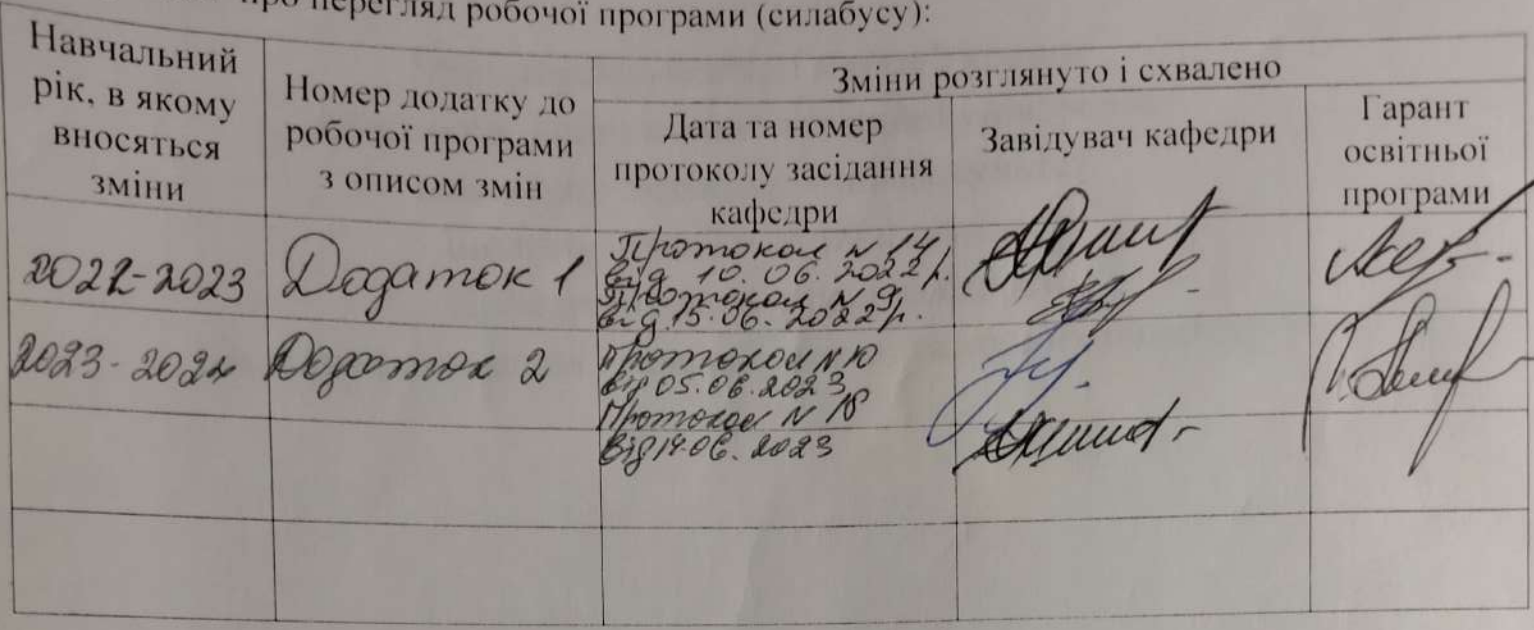 про перегляд робочої програми (силабусу):
Навчальний
рік, в якому
вносяться
зміни
Номер додатку до
робочої програми
з описом змін
Зміни розглянуто і схвалено
Дата та номер
протоколу засідання
кафедри
Завідувач кафедри
Гарант
освітньої
програми
2022-2023
Додаток 1
Протокол № 14
від 10.06.2022 р.
Протокол № 9
від 15.06.2022 р.
2023-2024
Додаток 2
Протокол № 10
від 05.06.2023
Протокол № 18
від 14.06.2023